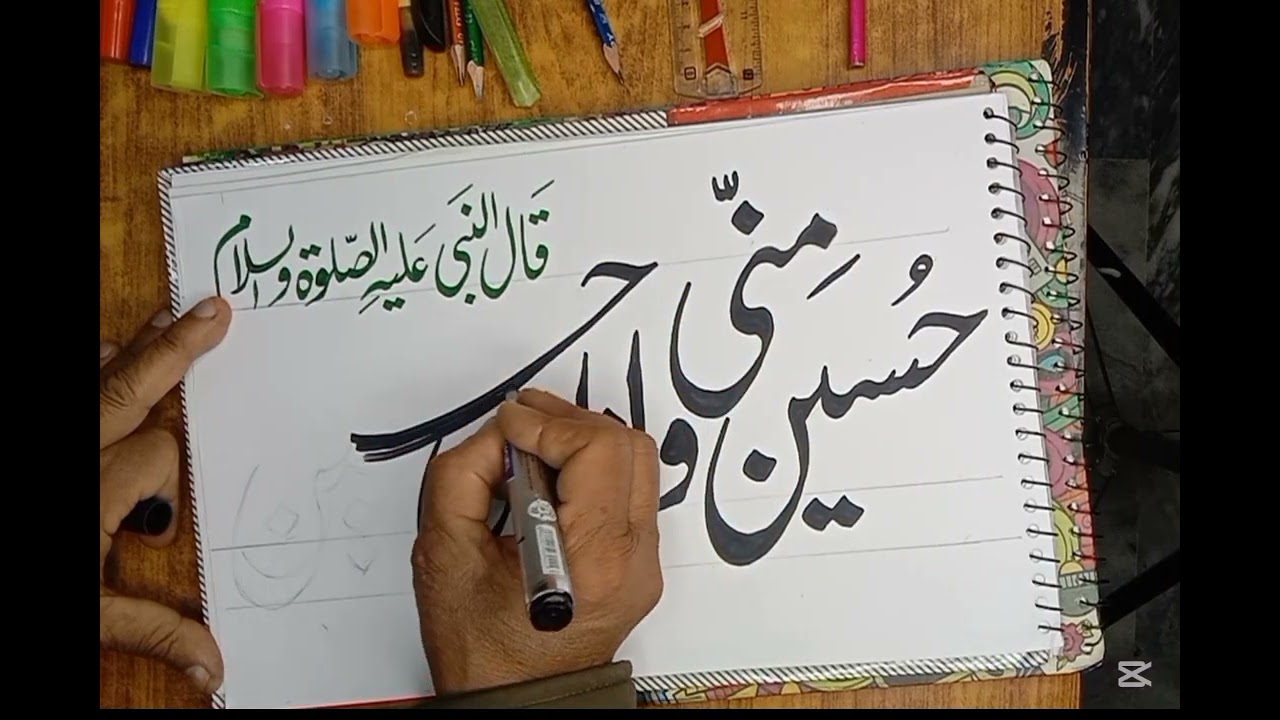 قَال النبَی عَلیهِ الصّلوة والسلام
حُسین مِنّی وانا